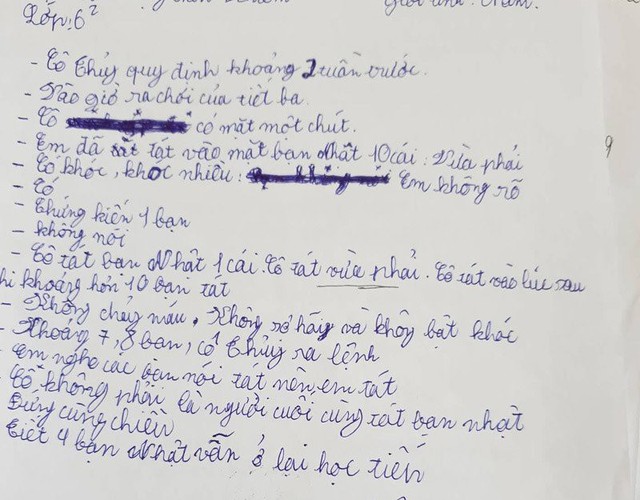 Lớp: 6²
Giới tính: Nam.
- Cô Thủy quy định khoảng 2 tuần trước.
- Vào giờ ra chơi của tiết ba.
- Cô có mặt một chút.
- Em đã tát vào mặt bạn Nhất 10 cái: Vừa phải
- Có khóc, khóc nhiều: Em không rõ
- Có
- Chứng kiến 1 bạn
- không nói
- Cô tát bạn Nhật 1 cái. Cô tát vừa phải. Cô tát vào lúc sau
khi khoảng hơn 10 bạn tát
- Không chảy máu. Không sợ hãy và không bật khóc
- Khoảng 7, 8 bạn, cô Thủy ra lệnh
- Em nghe các bạn nói tát nên em tát
Cô không phải là người cuối cùng tát bạn nhật
Đứng cùng chiều
Tiết 4 bạn Nhật vẫn ở lại học tiến
9